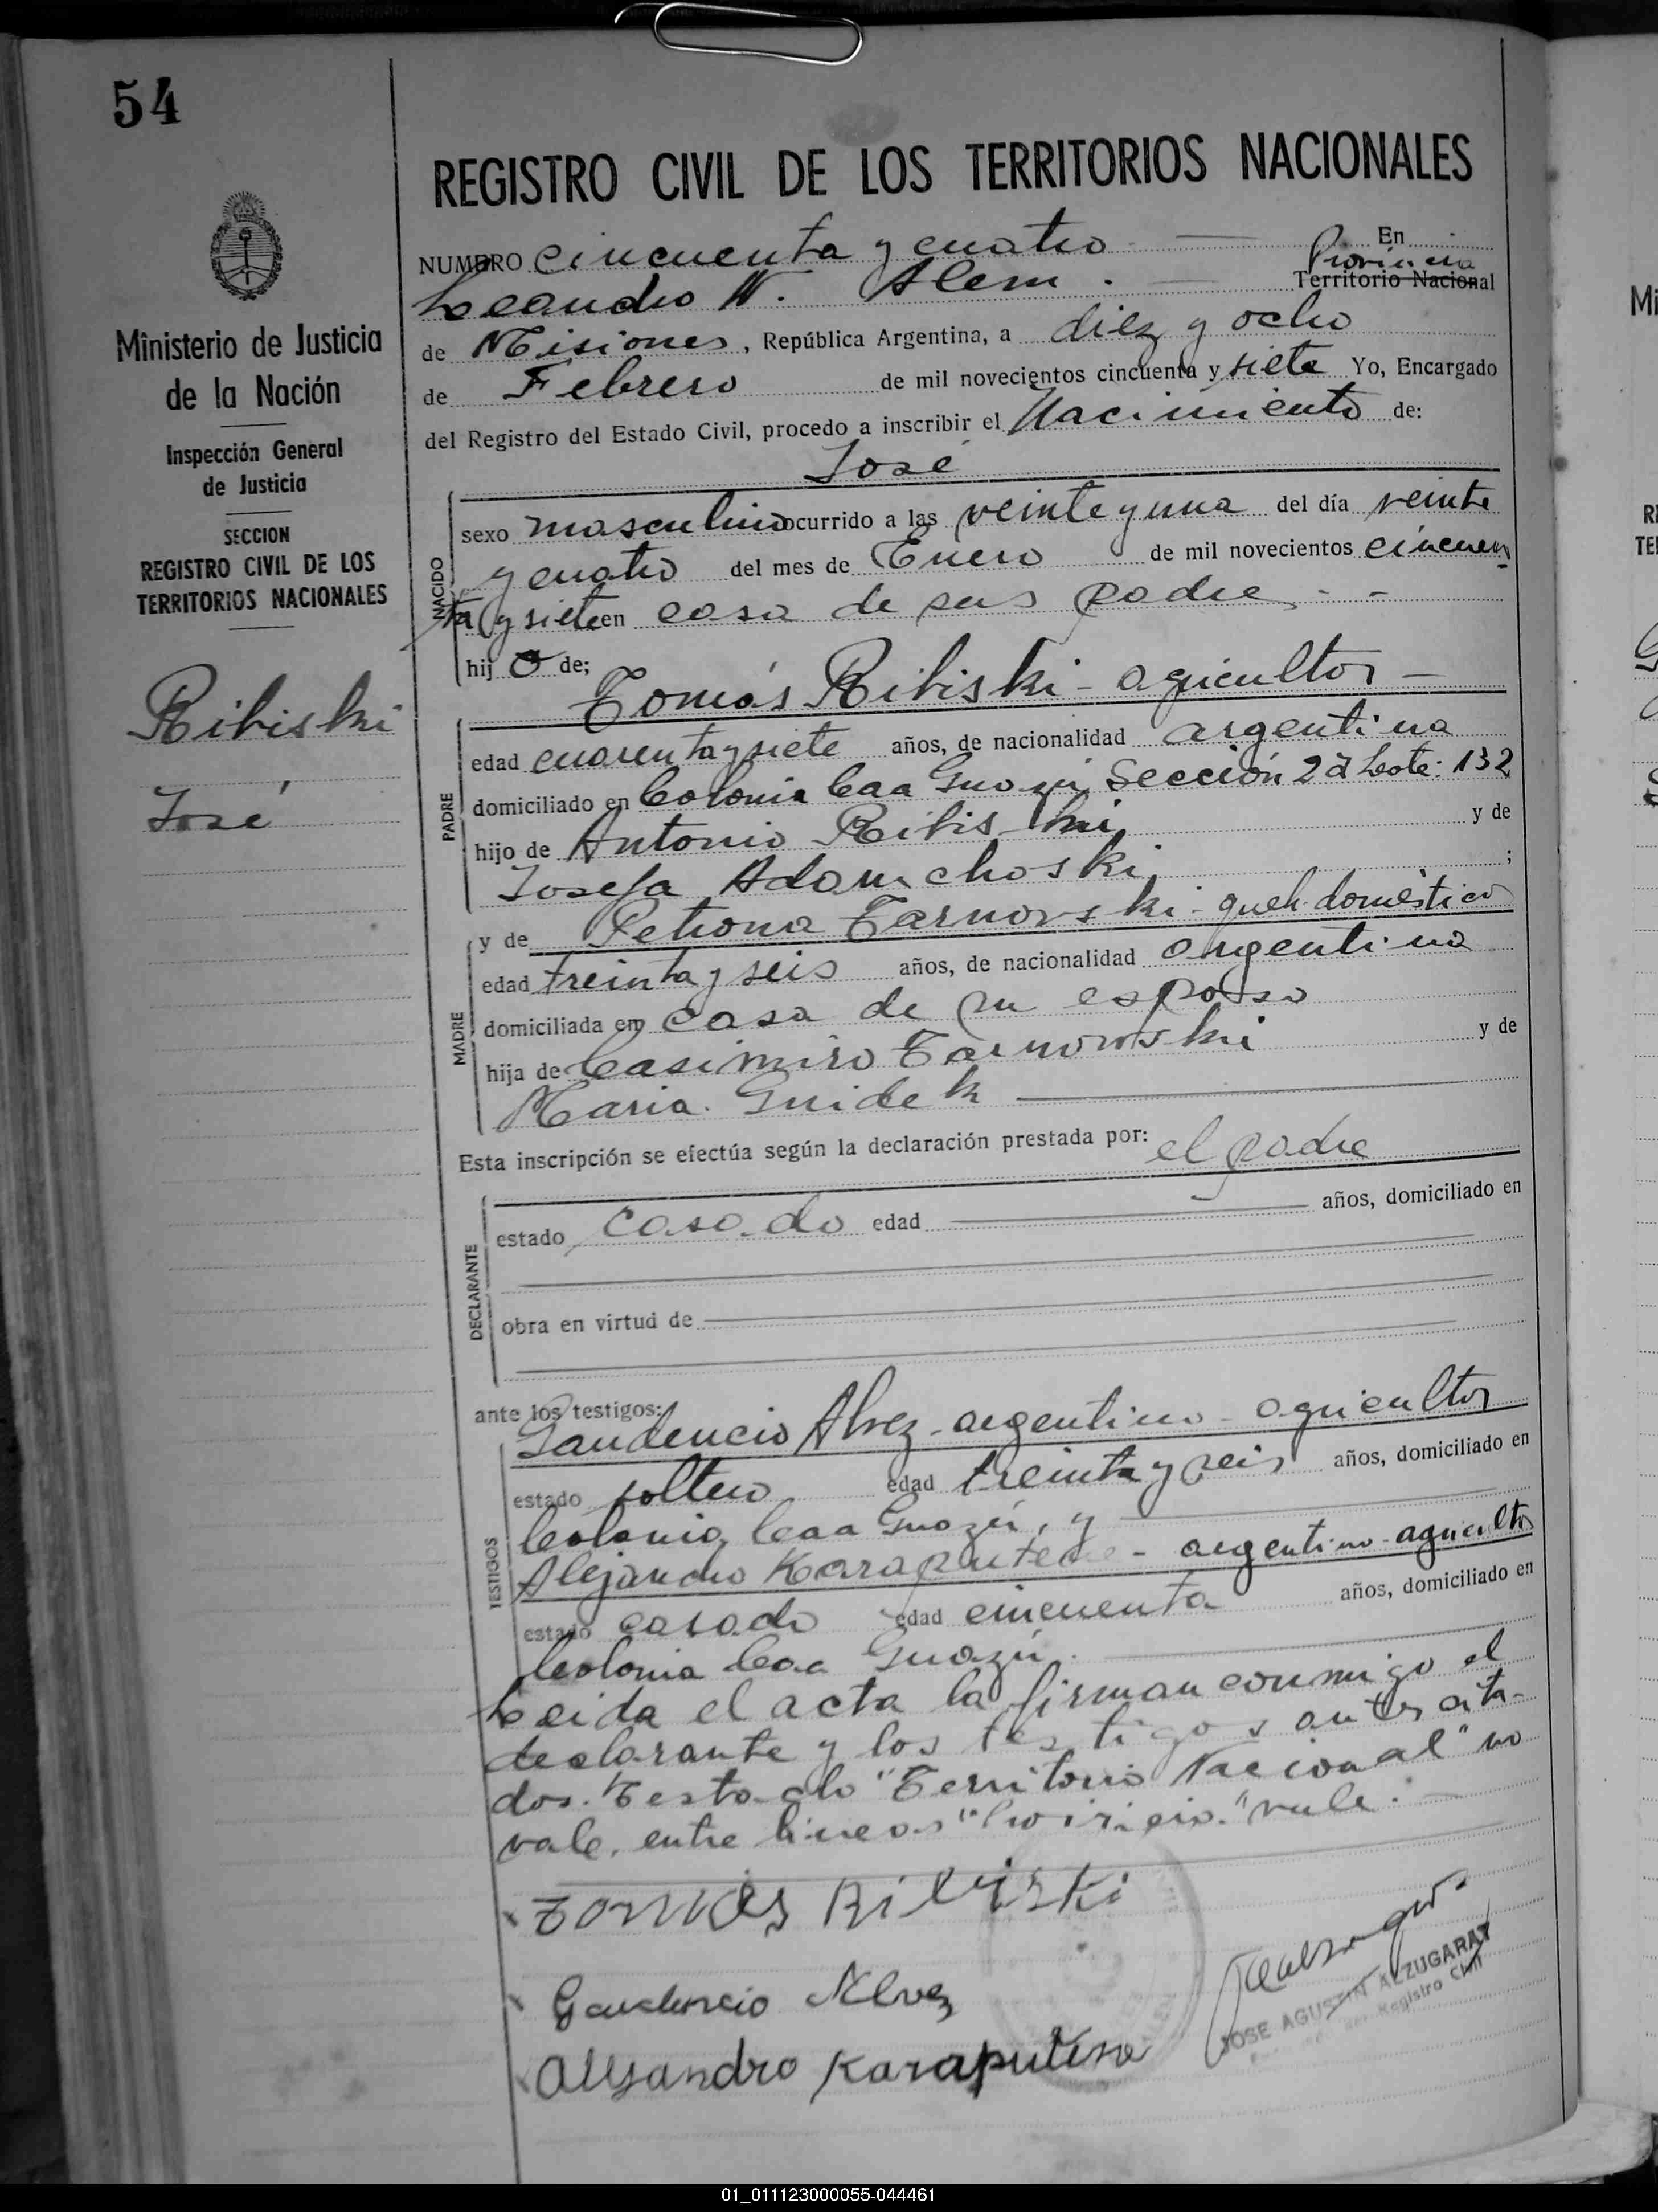 54
Ministerio de Justicia
de la Nación
Inspección General
de Justicia
SECCION
REGISTRO CIVIL DE LOS
TERRITORIOS NACIONALES
Ribiski
José
REGISTRO CIVIL DE LOS TERRITORIOS NACIONALES
NUMERO cincuenta y cuatro En
Leandro N. Alem. Provincia Territorio Nacional
de Misiones, República Argentina, a diez y ocho
de Febrero de mil novecientos cincuenta y siete Yo, Encargado
del Registro del Estado Civil, procedo a inscribir el Nacimiento de:
José
NACIDO
sexo masculino ocurrido a las veinte y una del día veinte
y cuatro del mes de Enero de mil novecientos cincuen
ta y siete en casa de sus padre
hijo de;
Tomás Ribiski - agricultor -
PADRE
edad cuarenta y siete años, de nacionalidad argentina
domiciliado en Colonia Caa Guazú Sección 2ª Lote: 132
hijo de Antonio Ribiski y de
Josefa Adamchoski ;
y de Petrona Tarnovski - queh. doméstico
MADRE
edad treinta y seis años, de nacionalidad argentina
domiciliada en casa de su esposo
hija de Casimiro Tarnowski y de
Maria Guidek
Esta inscripción se efectúa según la declaración prestada por: el padre
DECLARANTE
estado casado edad años, domiciliado en
obra en virtud de
ante los testigos:
Gaudencio Alvez - argentino - agricultor
TESTIGOS
estado soltero edad treinta y seis años, domiciliado en
Colonia Caa Guazú, y
Alejandro Karaputene - argentino - agricultor
estado casado edad cincuenta años, domiciliado en
Colonia Caa Guazú.
Leida el acta la firman conmigo el
declarante y los testigos antes cita-
dos. Testado "Territorio Nacional" no
vale, entre lineas "Provincia" vale.
Tomás Ribiski
Gaudencio Alvez
Alejandro Karaputene
JOSE AGUSTIN ALZUGARAY
Registro Civil
01_011123000055-044461